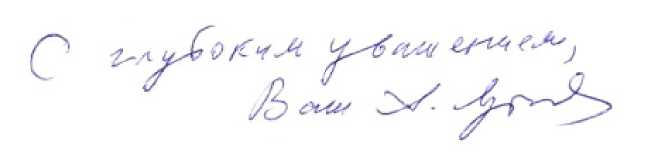 С глубоким уважением,
Ваш А.